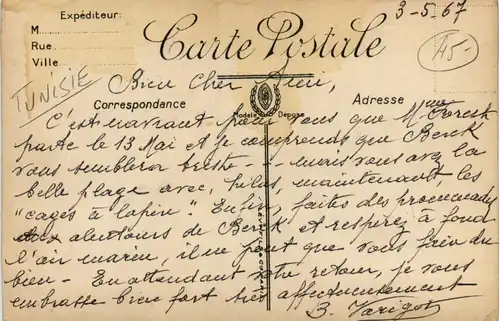 Expéditeur:
3-5-67
M
Rue
Ville
Carte Postale
45-
TUNISIE
Bien Cher Ami,
Correspondance
Modèle Déposé
Adresse
C'est navrant pour vous que Mme
parte le 13 Mai et je comprends que Berck
vous semblera triste - - mais vous avez la
belle plage avec, hélas, maintenant, les
"cages à lapin". Enfin, faites des promenades
aux alentours de Berck et respirez à fond
l'air marin, il ne peut que vous faire du
bien - En attendant votre retour, je vous
embrasse bien fort très affectueusement